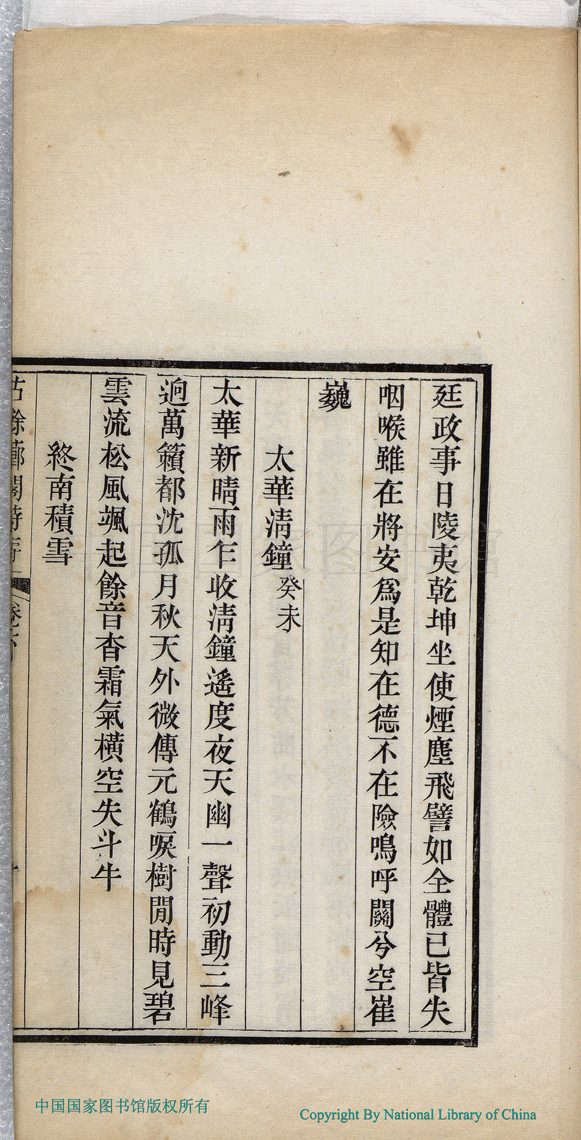 廷政事日陵夷乾坤坐使煙塵飛譬如全體已皆失
咽喉雖在將安爲是知在德不在險嗚呼關兮空崔
巍
太華清鐘癸未
太華新晴雨乍收清鐘遙度夜天幽一聲初動三峰
逈萬籟都沈孤月秋天外微傳元鶴唳樹閒時見碧
雲流松風颯起餘音杳霜氣橫空失斗牛
終南積雪
中国国家图书馆版权所有
Copyright By National Library of China